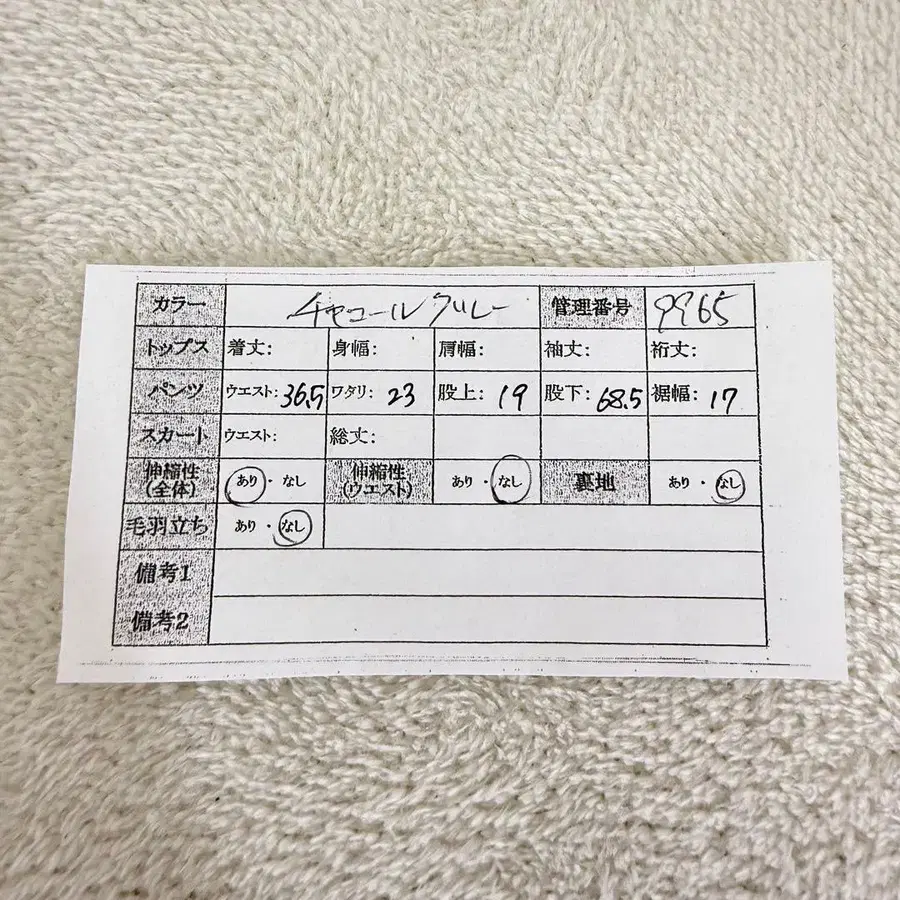 カラー チャコールグレー 管理番号 9965
トップス 着丈: 身幅: 肩幅: 袖丈: 裄丈:
パンツ ウエスト: 36.5 ワタリ: 23 股上: 19 股下: 68.5 裾幅: 17
スカート ウエスト: 総丈:
伸縮性(全体) あり・なし 伸縮性(ウエスト) あり・なし 裏地 あり・なし
毛羽立ち あり・なし
備考1
備考2